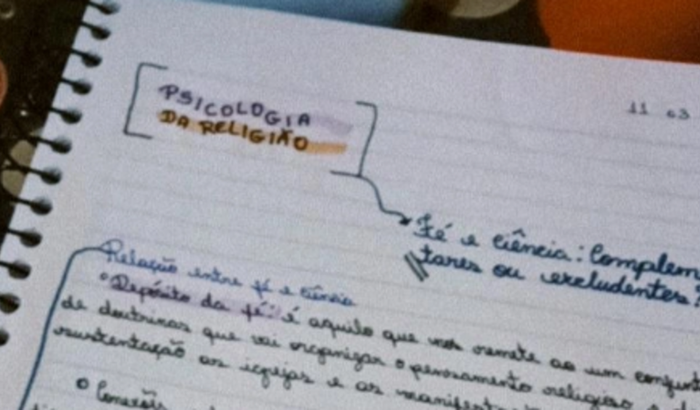 PSICOLOGIA
DA RELIGIÃO
11 03
Fé e ciência: Complemen
tares ou excludentes?
Relação entre fé e ciência
Depósito da fé: é aquilo que nos remete ao um conjunt
de doutrinas que vai organizar o pensamento religioso e d
sustentação as igrejas e as manifest
Conexões